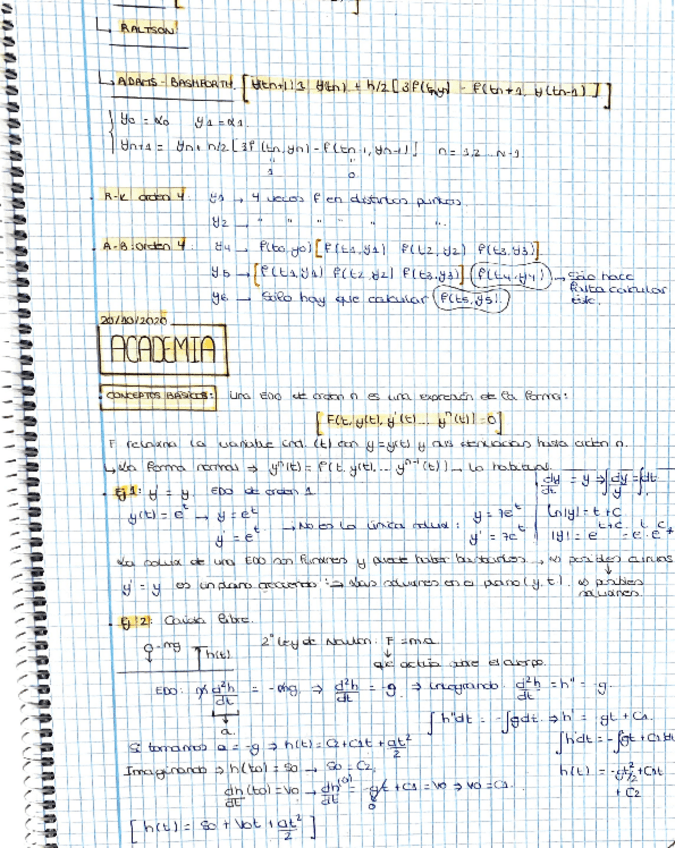 ↳ RALTSON
↳ ADAMS-BASHFORTH. [y(tn+1) ≅ y(tn) + h/2 [3f(tn,yn) - f(tn+1, y(tn-1))]]
{ y0 = α0 y1 = α1
yn+1 = yn + h/2 [3f(tn,yn) - f(tn-1, yn-1)] n = 1,2...N-1
" "
1 0
R-K orden 4: y1 → 4 veces f en distintos puntos.
y2 → " " " " " "
A-B orden 4: y4 → f(t0,y0) [f(t1,y1) f(t2,y2) f(t3,y3)]
y5 → [f(t1,y1) f(t2,y2) f(t3,y3)] (f(t4,y4)) → Sólo hace
falta calcular
este.
y6 → Sólo hay que calcular (f(t5,y5)).
20/10/2020
ACADEMIA
CONCEPTOS BÁSICOS: Una EDO de orden n es una expresión de la forma:
[F(t, y(t), y'(t)... yⁿ(t)) = 0]
F relaciona la variable ind. (t) con y=y(t) y sus derivadas hasta orden n.
↳ La forma normal ⇒ yⁿ(t) = f(t, y(t),... yⁿ⁻¹(t)) → Lo habitual
Ej 1: y' = y. EDO de orden 1 dy/dt = y ⇒ ∫dy/y = ∫dt
y(t) = eᵗ → y = eᵗ y = 7eᵗ ln|y| = t + C
y' = eᵗ → No es la única : y' = 7eᵗ |y| = e^(t+C) = eᵗ·e^C
La de una EDO son funciones y puede haber
y' = y es un ⇒ en el plano (y,t).
Ej 2: Caída libre.
-mg h(t) 2ª Ley de Newton. F = ma
↓
que actúa sobre el cuerpo.
EDO: m d²h/dt = -mg ⇒ d²h/dt = g ⇒ integrando: d²h/dt = h'' = -g.
↓
a
∫h''dt = -∫gdt ⇒ h' = gt + C1.
Si tomamos a = -g ⇒ h(t) = C2 + C1t + at²/2 ∫h'dt = -∫gt + C1dt
Imaginando ⇒ h(t0) = S0 → S0 = C2. h(t) = -gt²/2 + C1t
+ C2
dh/dt (t0) = V0 → dh/dt (0) = -gt + C1 = V0 ⇒ V0 = C1.
0
[h(t) = S0 + V0t + at²/2]